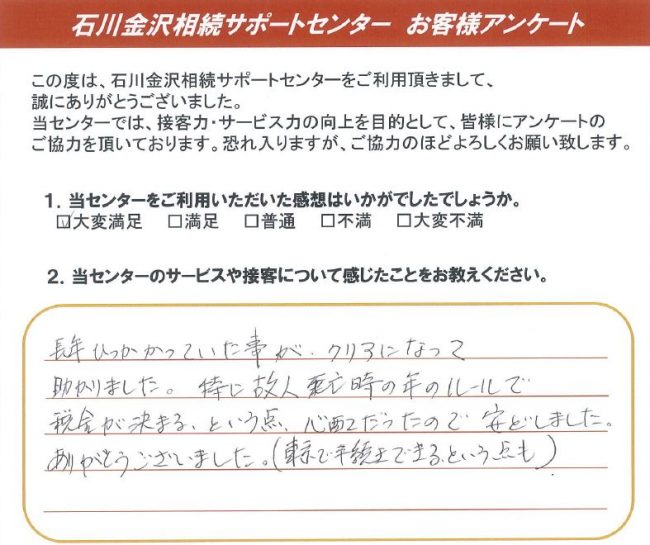 石川金沢相続サポートセンター お客様アンケート
この度は、石川金沢相続サポートセンターをご利用頂きまして、
誠にありがとうございました。
当センターでは、接客力・サービス力の向上を目的として、皆様にアンケートの
ご協力を頂いております。恐れ入りますが、ご協力のほどよろしくお願い致します。
1. 当センターをご利用いただいた感想はいかがでしたでしょうか。
☑大変満足 □満足 □普通 □不満 □大変不満
2. 当センターのサービスや接客について感じたことをお教えください。
長年ひっかかっていた事が、クリアになって
助かりました。特に故人死亡時の年のルールで
税金が決まる、という点、心配だったので安どしました。
ありがとうございました。(東京で手続きできるという点も)